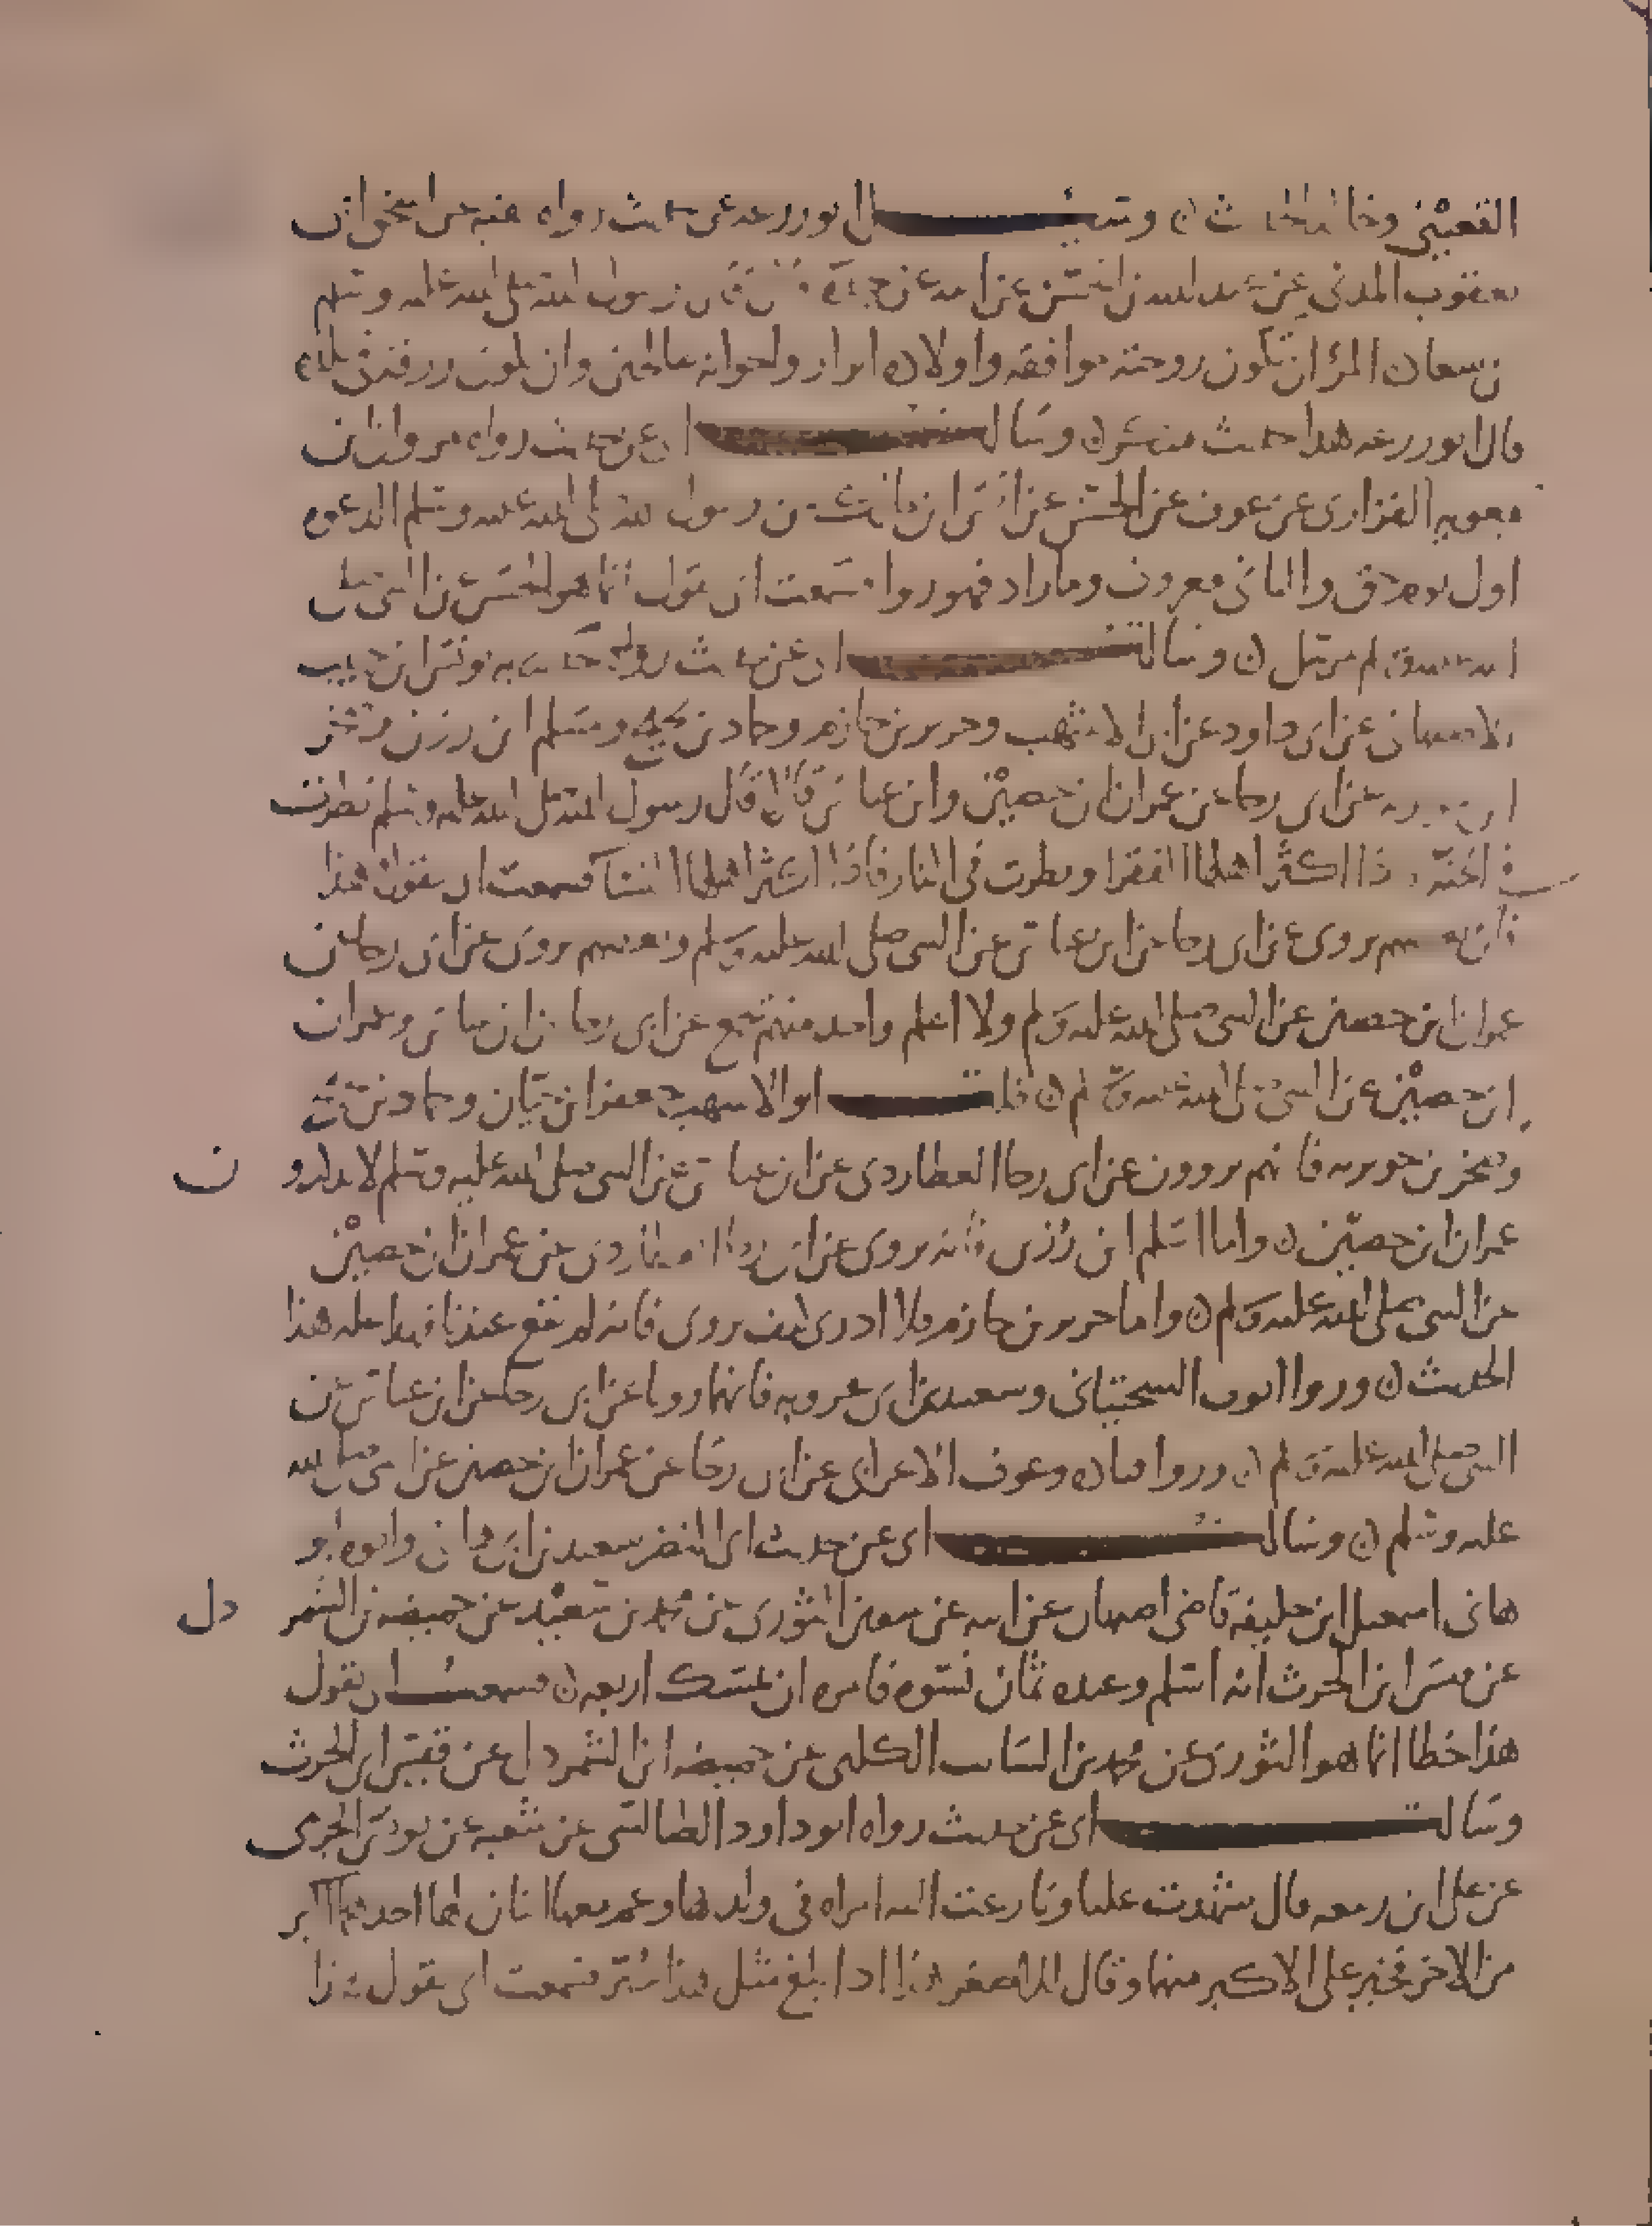 القعبيني وخالد الحديث ن وسئل ابو زرعه عن حديث رواه عتبه عن اسحق ابن
يعقوب المدني عن عبد الله بن الحسن عن ابيه عن جده قال قال رسول الله صلى الله عليه وسلم
من سعادة المرء ان تكون زوجته موافقه واولاده ابرار واخوانه صالحين وان يكون رزقه في بلده
قال ابو زرعه هذا حديث منكر ن وسالت ابي عن حديث رواه مروان ابن
معويه الفزاري عن عوف عن الحسن عن انس ابن مالك عن رسول الله صلى الله عليه وسلم الدعوه
اول يوم حق والثاني معروف وما زاد فهو ريا فسمعت ابي يقول انما هو الحسن عن النبي صلى
الله عليه وسلم مرسل ن وسالت ابي عن حديث رواه حدثنا به يونس ابن حبيب
الاصبهاني عن ابي داود عن ابي الاشهب وجرير بن حازم وحماد بن نجيح وسلم ابن زرير وصخر
ابن جويريه عن ابي رجا عن عمران ابن حصين وابن عباس قالا قال رسول الله صلى الله عليه وسلم نظرت
في الجنه فاذا اكثر اهلها الفقرا ونظرت في النار فاذا اكثر اهلها النسا فسمعت ابي يقول هذا
فان بعضهم يروي عن ابي رجا عن ابن عباس عن النبي صلى الله عليه وسلم وبعضهم يروي عن ابي رجا عن
عمران ابن حصين عن النبي صلى الله عليه وسلم ولا اعلم واحد منهم جمع عن ابي رجا عن ابن عباس وعمران
ابن حصين عن النبي صلى الله عليه وسلم ن فاما ابو الاشهب جعفر ابن حيان وحماد بن نجيح
وصخر بن جويريه فانهم يروون عن ابي رجا العطاردي عن ابن عباس عن النبي صلى الله عليه وسلم لا يذكرون
عمران ابن حصين ن واما اسلم ابن زرير فانه يروي عن ابي رجا العطاردي عن عمران ابن حصين
عن النبي صلى الله عليه وسلم ن واما جرير بن حازم فلا ادري كيف يروي فانه لم يقع عندنا فهذا عله هذا
الحديث ن وروا ايوب السختياني وسعيد بن ابي عروبه فانهما رويا عن ابي رجا عن ابن عباس عن
النبي صلى الله عليه وسلم ن وروا قتاده وعوف الاعرابي عن ابي رجا عن عمران ابن حصين عن النبي صلى الله
عليه وسلم ن وسالت ابي عن حديث ابي النضر سعيد بن ابي هاني وابوه ابو
هاني اسمعيل ابن خليفه قاضي اصبهان عن ابيه عن سفين الثوري عن محمد بن سعيد عن حميضه بن الشمردل
عن ميسرا ابن الحرث انه اسلم وعنده ثمان نسوه فامره ان يمسك اربعه ن فسمعت ابي يقول
هذا خطا انما هو الثوري عن محمد بن السايب الكلبي عن حميضه ابن الشمردل عن قيس ابن الحرث
وسالت ابي عن حديث رواه ابو داود الطيالسي عن شعبه عن يونس الجرمي
عن علي ابن ربيعه قال شهدت عليا وتنازعت اليه امراه في ولدها وعم معها ابنان لها احدهما اكبر
من الاخر فخير علي الاكبر منهما وقال للاصغر هذا اذا بلغ مثل هذا خير فسمعت ابي يقول هذا